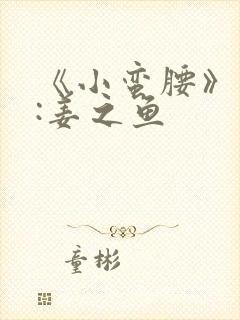 《小蛮腰》
:姜之鱼
童彬